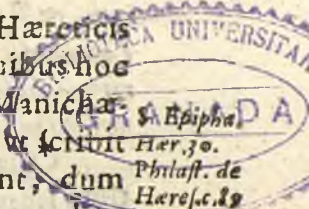 Hæreticis
nibus hoc
Manichæ-
vt scribit
nt, dum
S. Epipha.
Hær. 30.
Philast. de
Hæres. c. 89
BIBLIOTECA UNIVERSITARIA
GRANADA